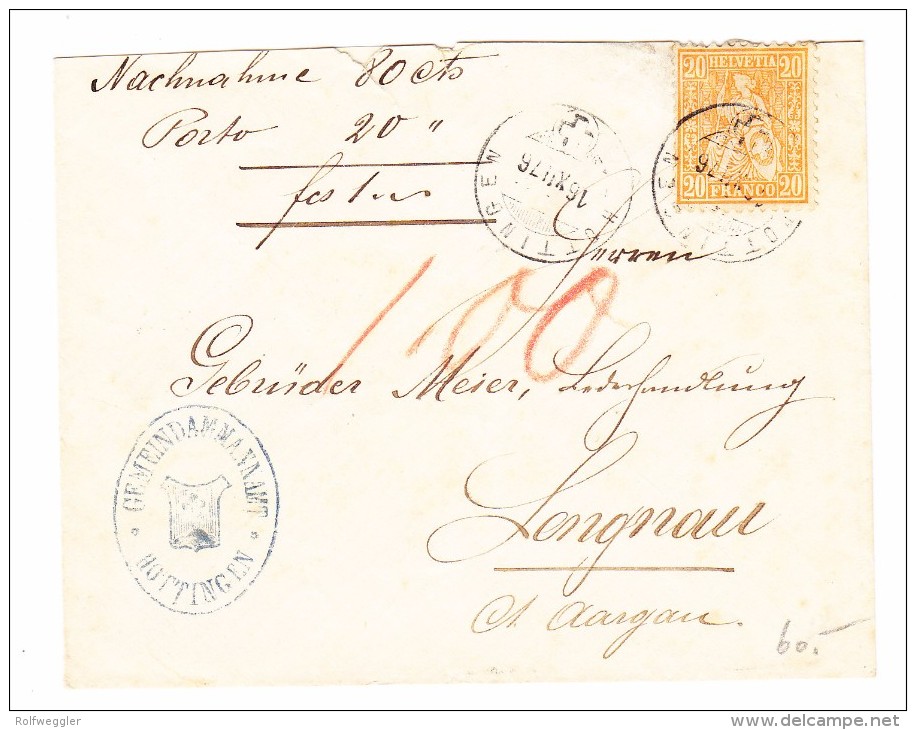 Nachnahme 80 cts
Porto 20 "
20 HELVETIA 20
20 FRANCO 20
HOTTINGEN
16 XII 76
HOTTINGEN
Herren
100
Gebrüder Meier, Lederhandlung
Lengnau
Ct. Aargau.
GEMEINDAMMANAMT
HOTTINGEN
60.-
Rolfweggler
delcampe.net